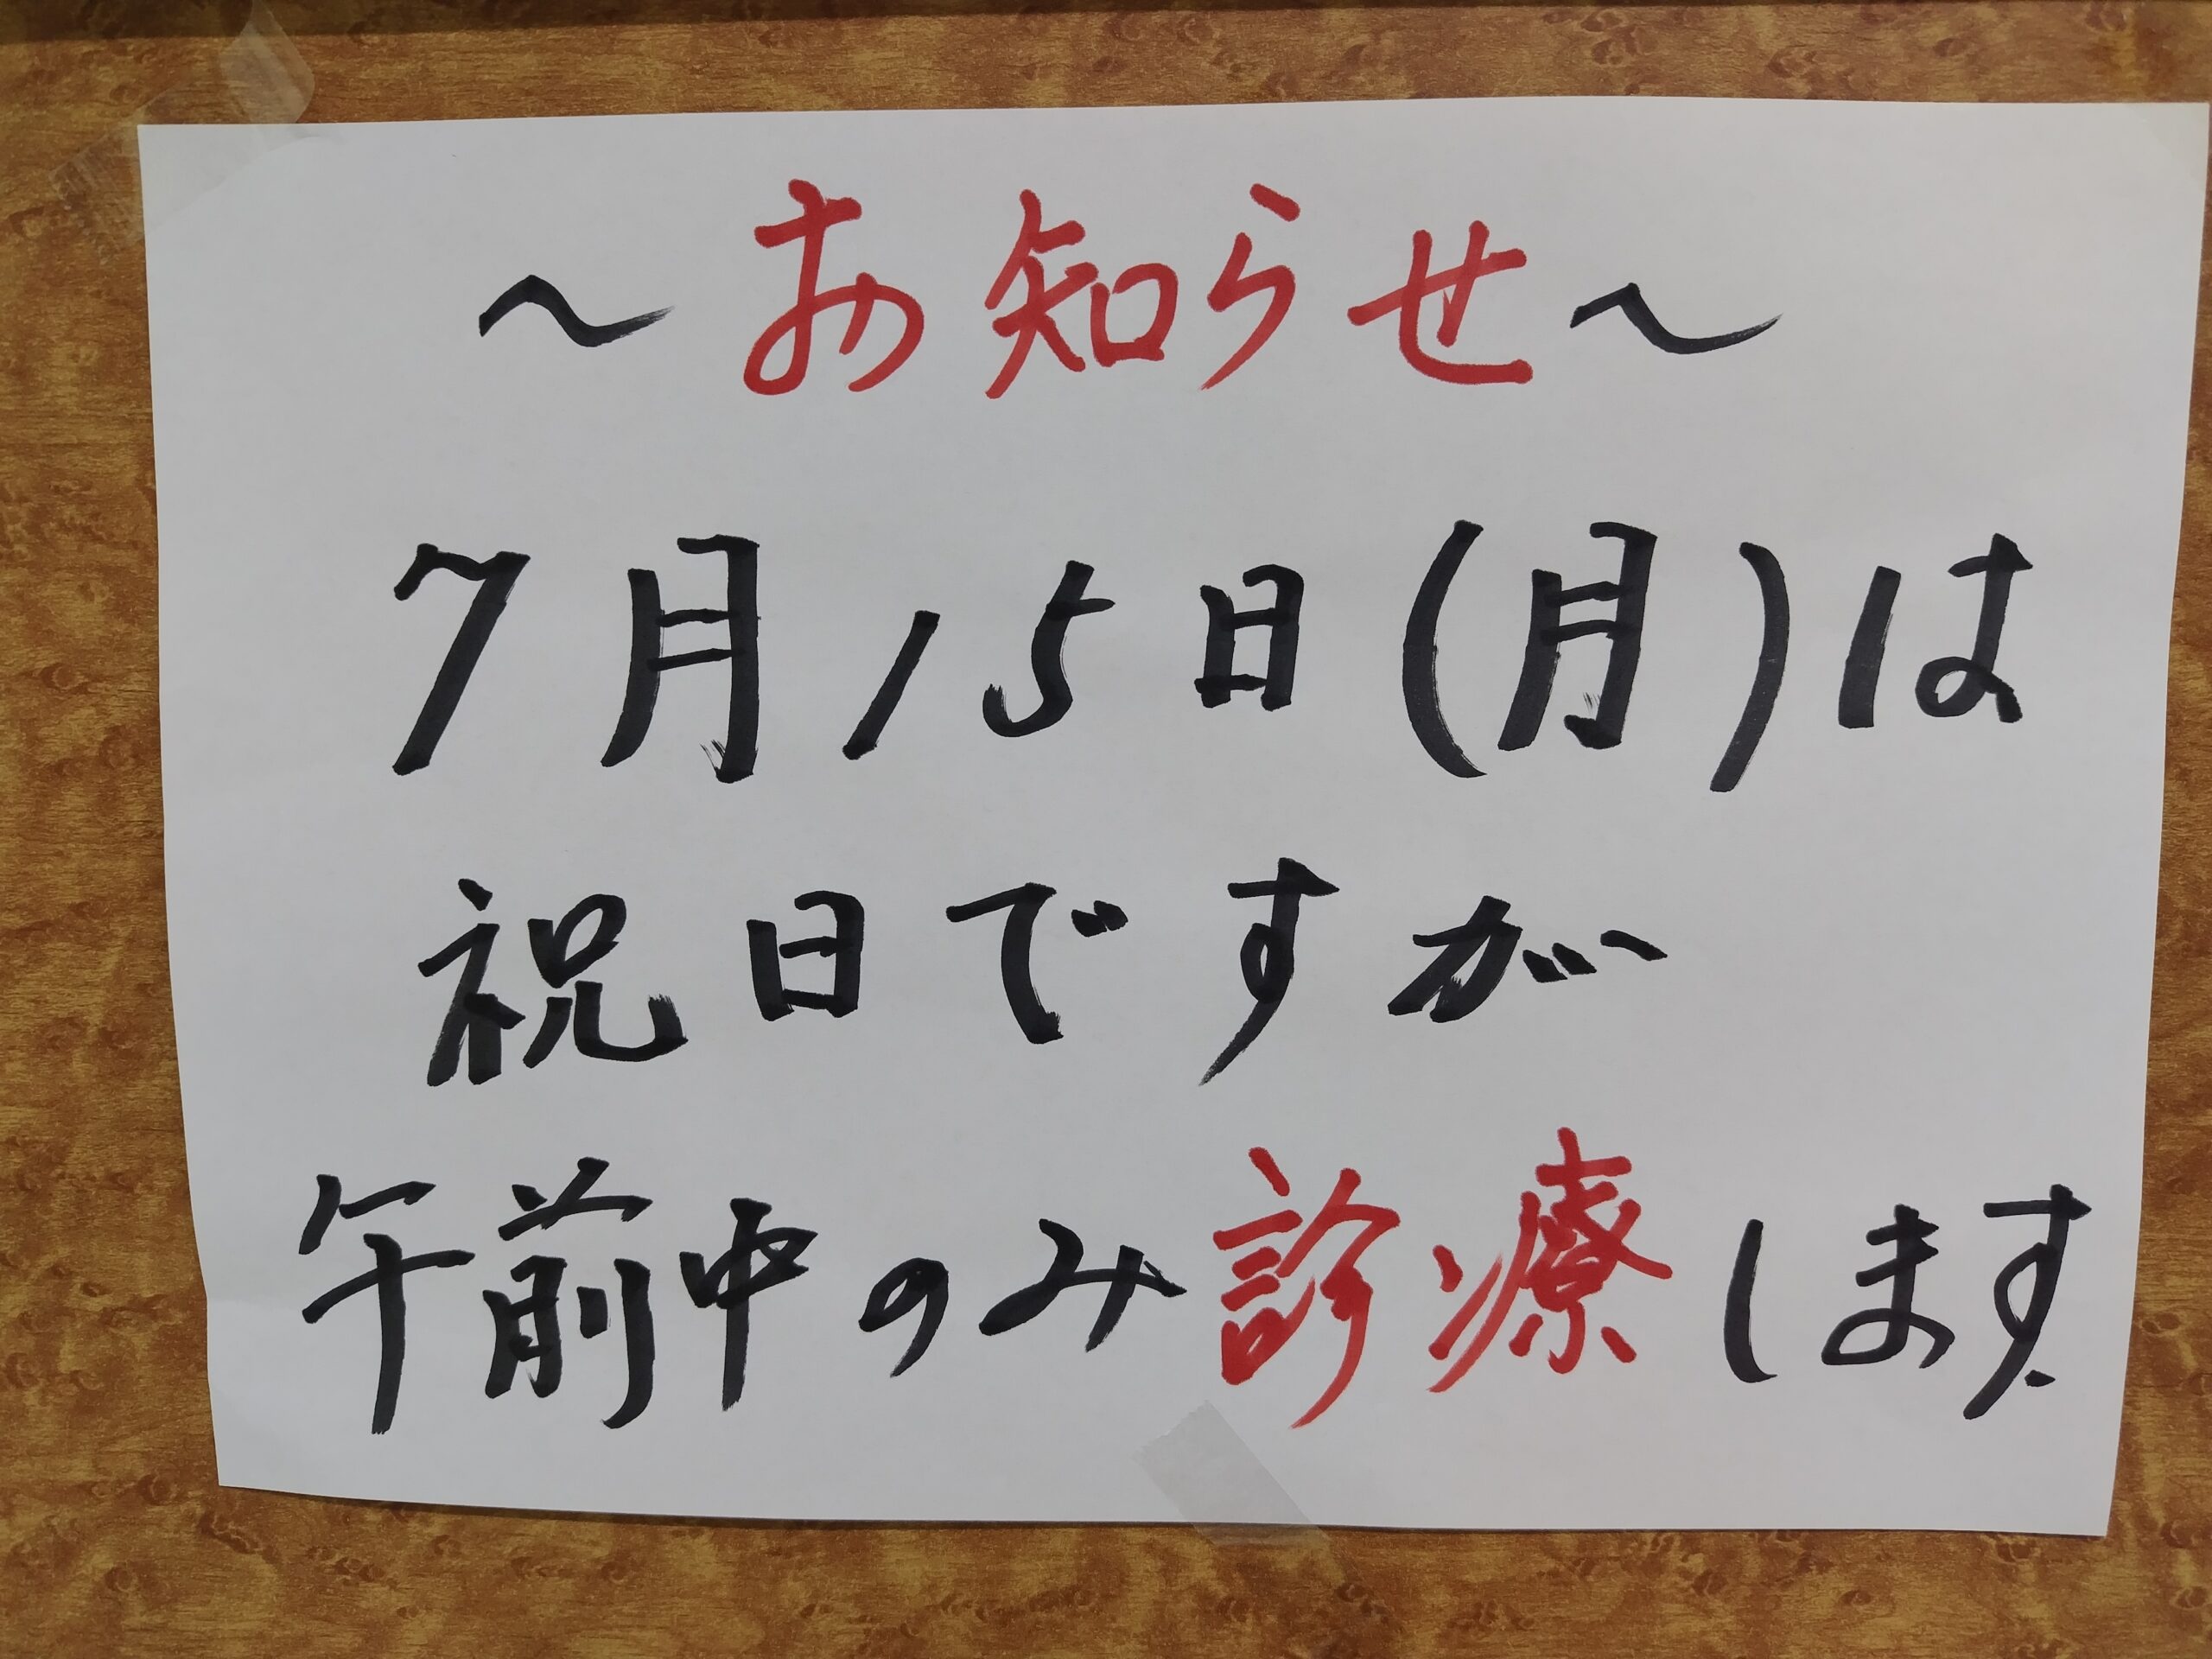 ～お知らせ～
7月15日(月)は
祝日ですが
午前中のみ診療します.